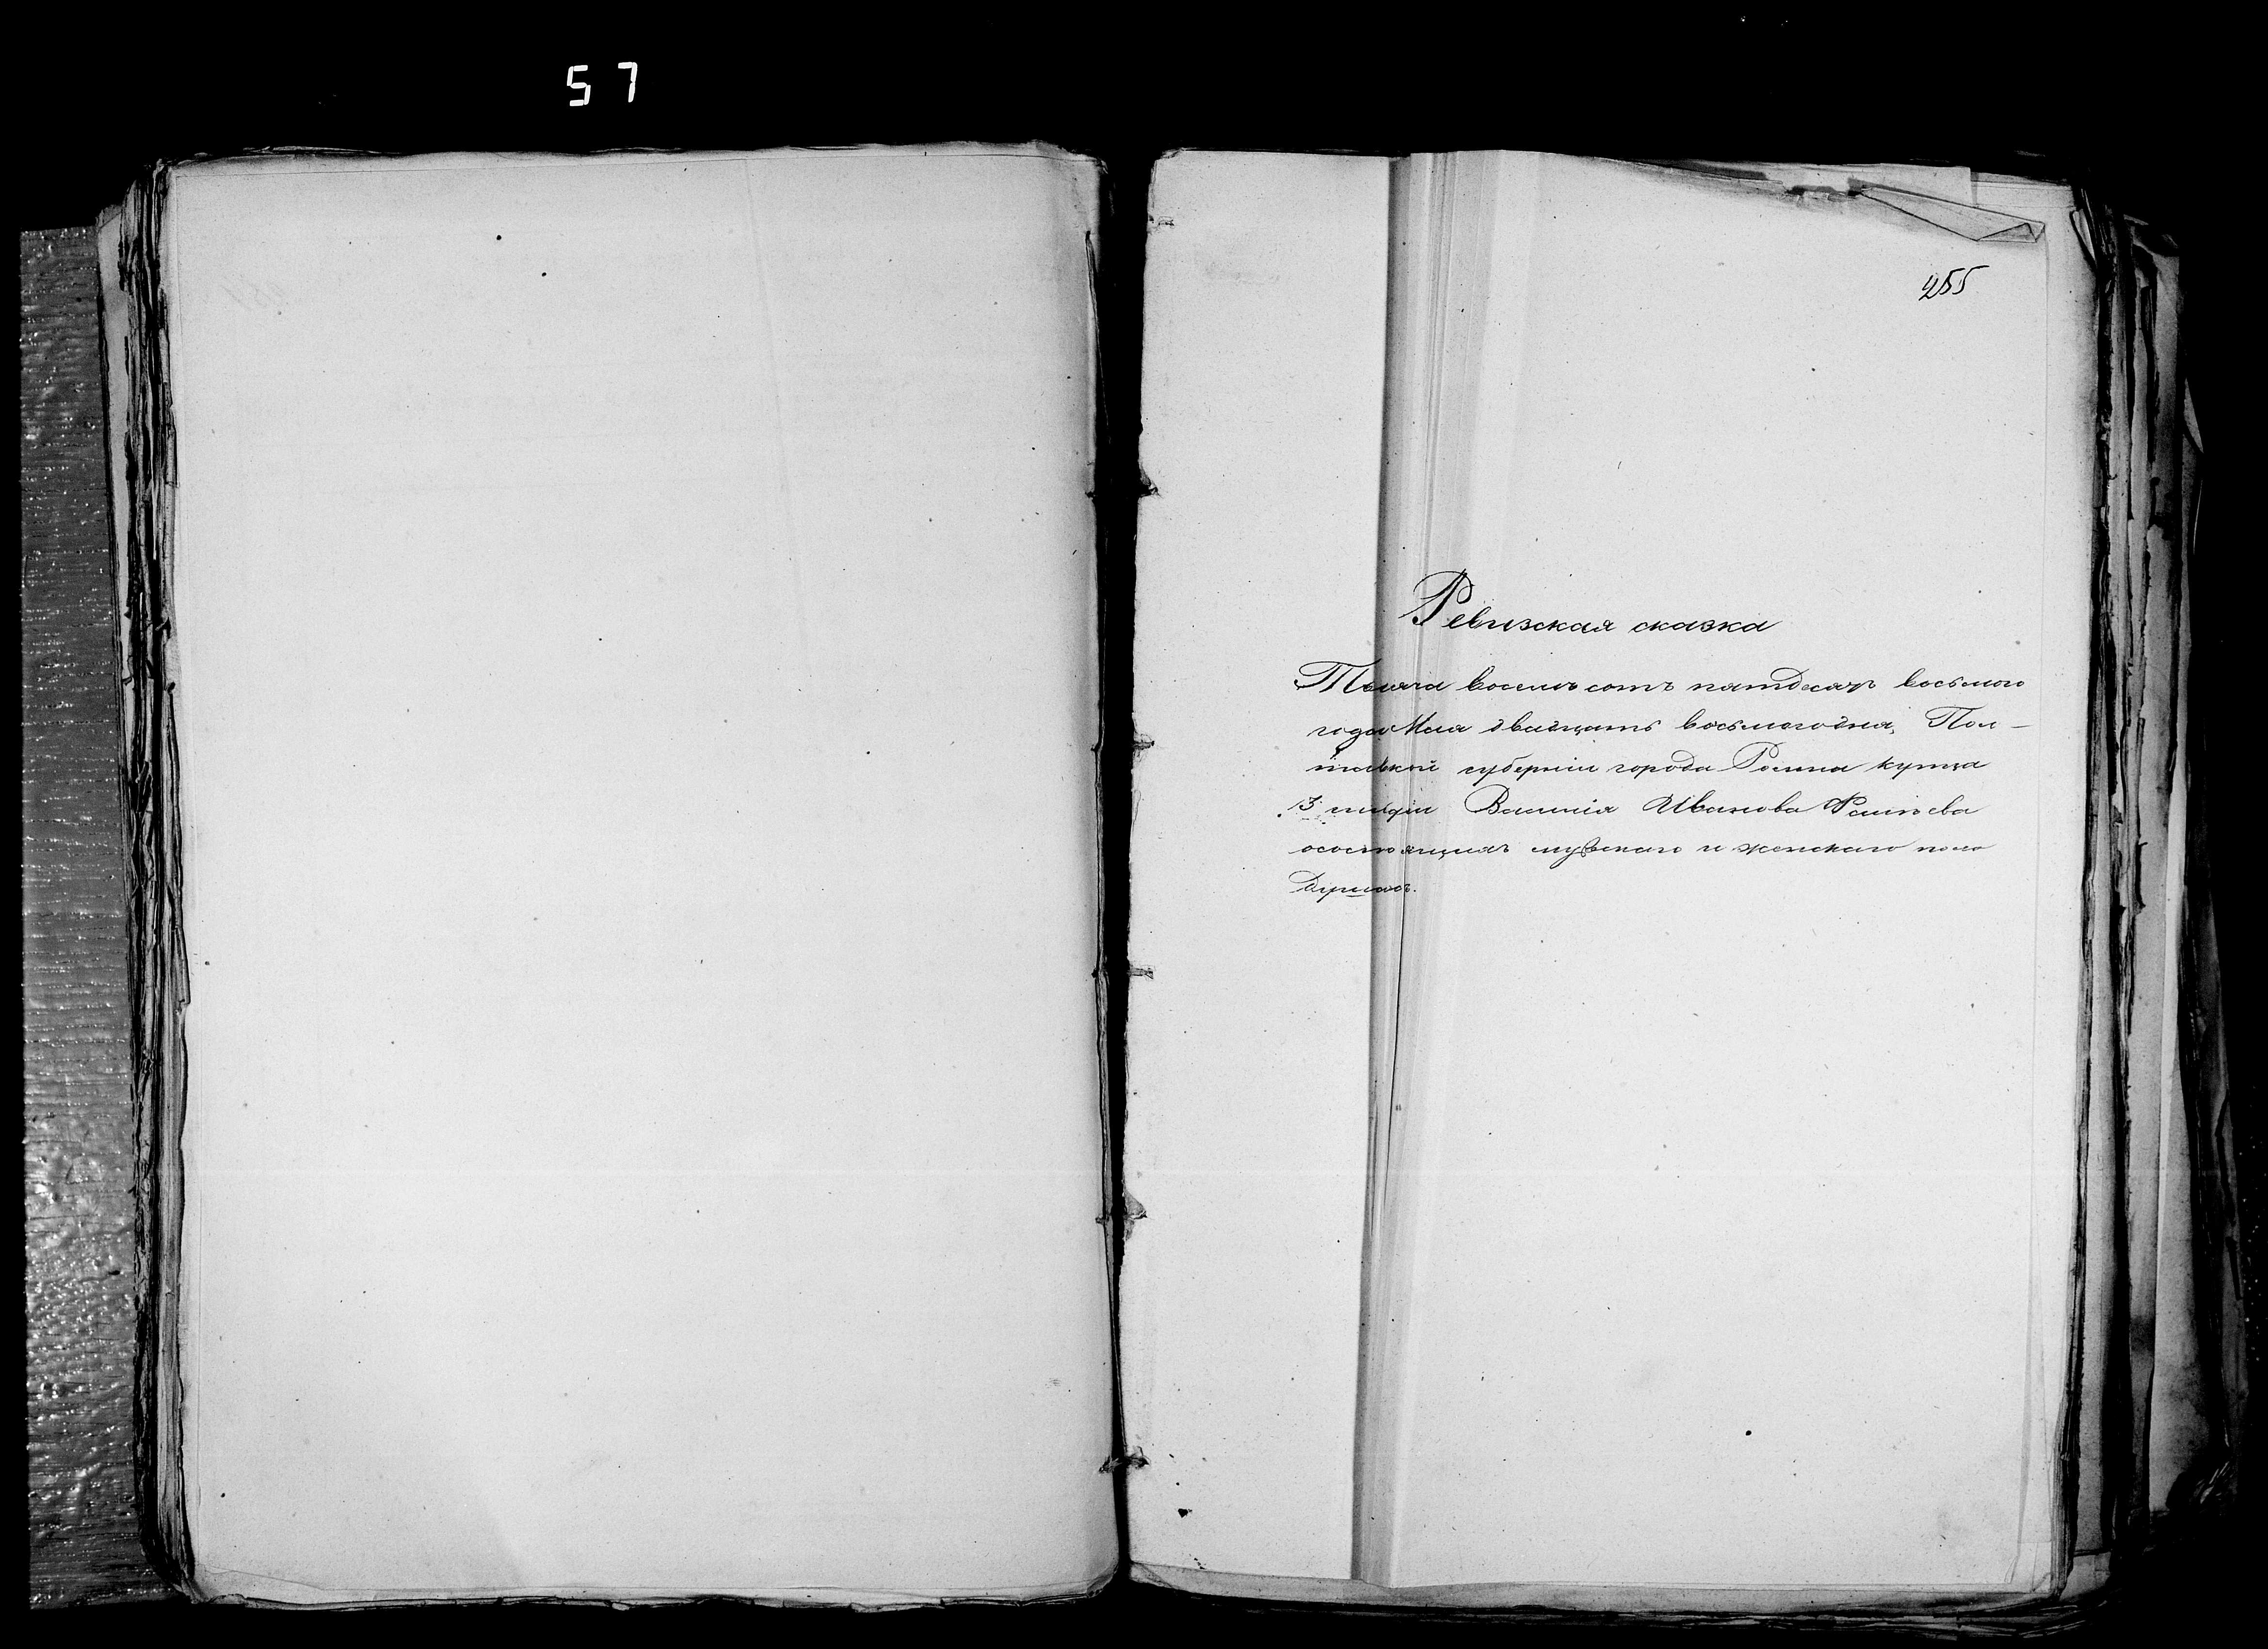 57
255
Ревизская сказка
Тысяча восемь сотъ пятдесятъ восьмого
года Мая двадцать восьмого дня, Пол-
тавской губерніи города Ромна купца
3 гильдіи Василія Иванова
о состоящихъ мужескаго и женскаго пола
душахъ.